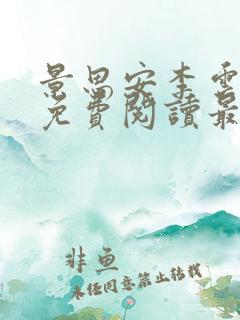 景思安李雲
免費閱讀最
非魚
未经同意禁止转载